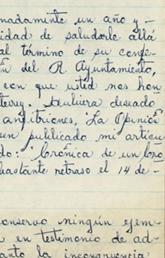 nadamente un año y -
idad de saludarle allá
al término de su conse-
en del R. Ayuntamiento,
con que usted nos hon
terey. Hubiera deseado
anfitriones, "La Opinión
un publicado mi artícu
do: "Crónica de un
bastante retraso el 14 de-
onservo ningún ejem-
a en testimonio de ad-
anto la incongruencia